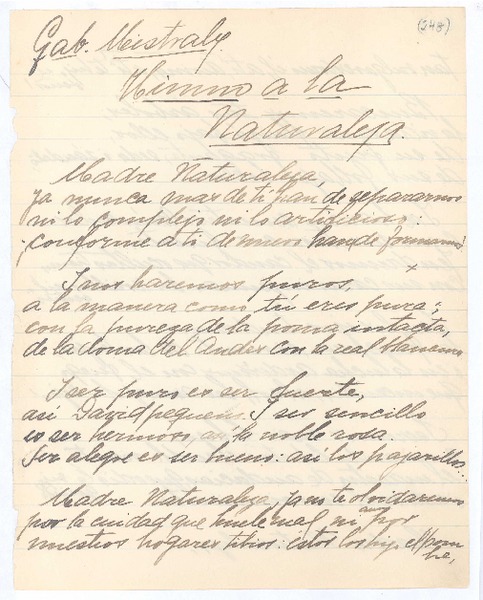 (248)
Gab. Mistral
Himno a la
Naturaleza.
Madre Naturaleza,
ya nunca mas de ti han de separarnos
ni lo complejo ni lo artificioso:
¡conforme a ti de nuevo han de formarnos
I nos haremos puros,
a la manera como tú eres pura;
con la pureza de la poma intacta,
de la loma del Andes con la real blancura
I ser puro es ser fuerte,
así David pequeño. I ser sencillo
es ser hermoso, así la noble rosa.
Ser alegre es ser bueno: así los pajarillos.
Madre Naturaleza, ya no te olvidaremos
por la ciudad que huele mal, ni aun por
nuestros hogares tibios: estos los hizo el hom
bre,